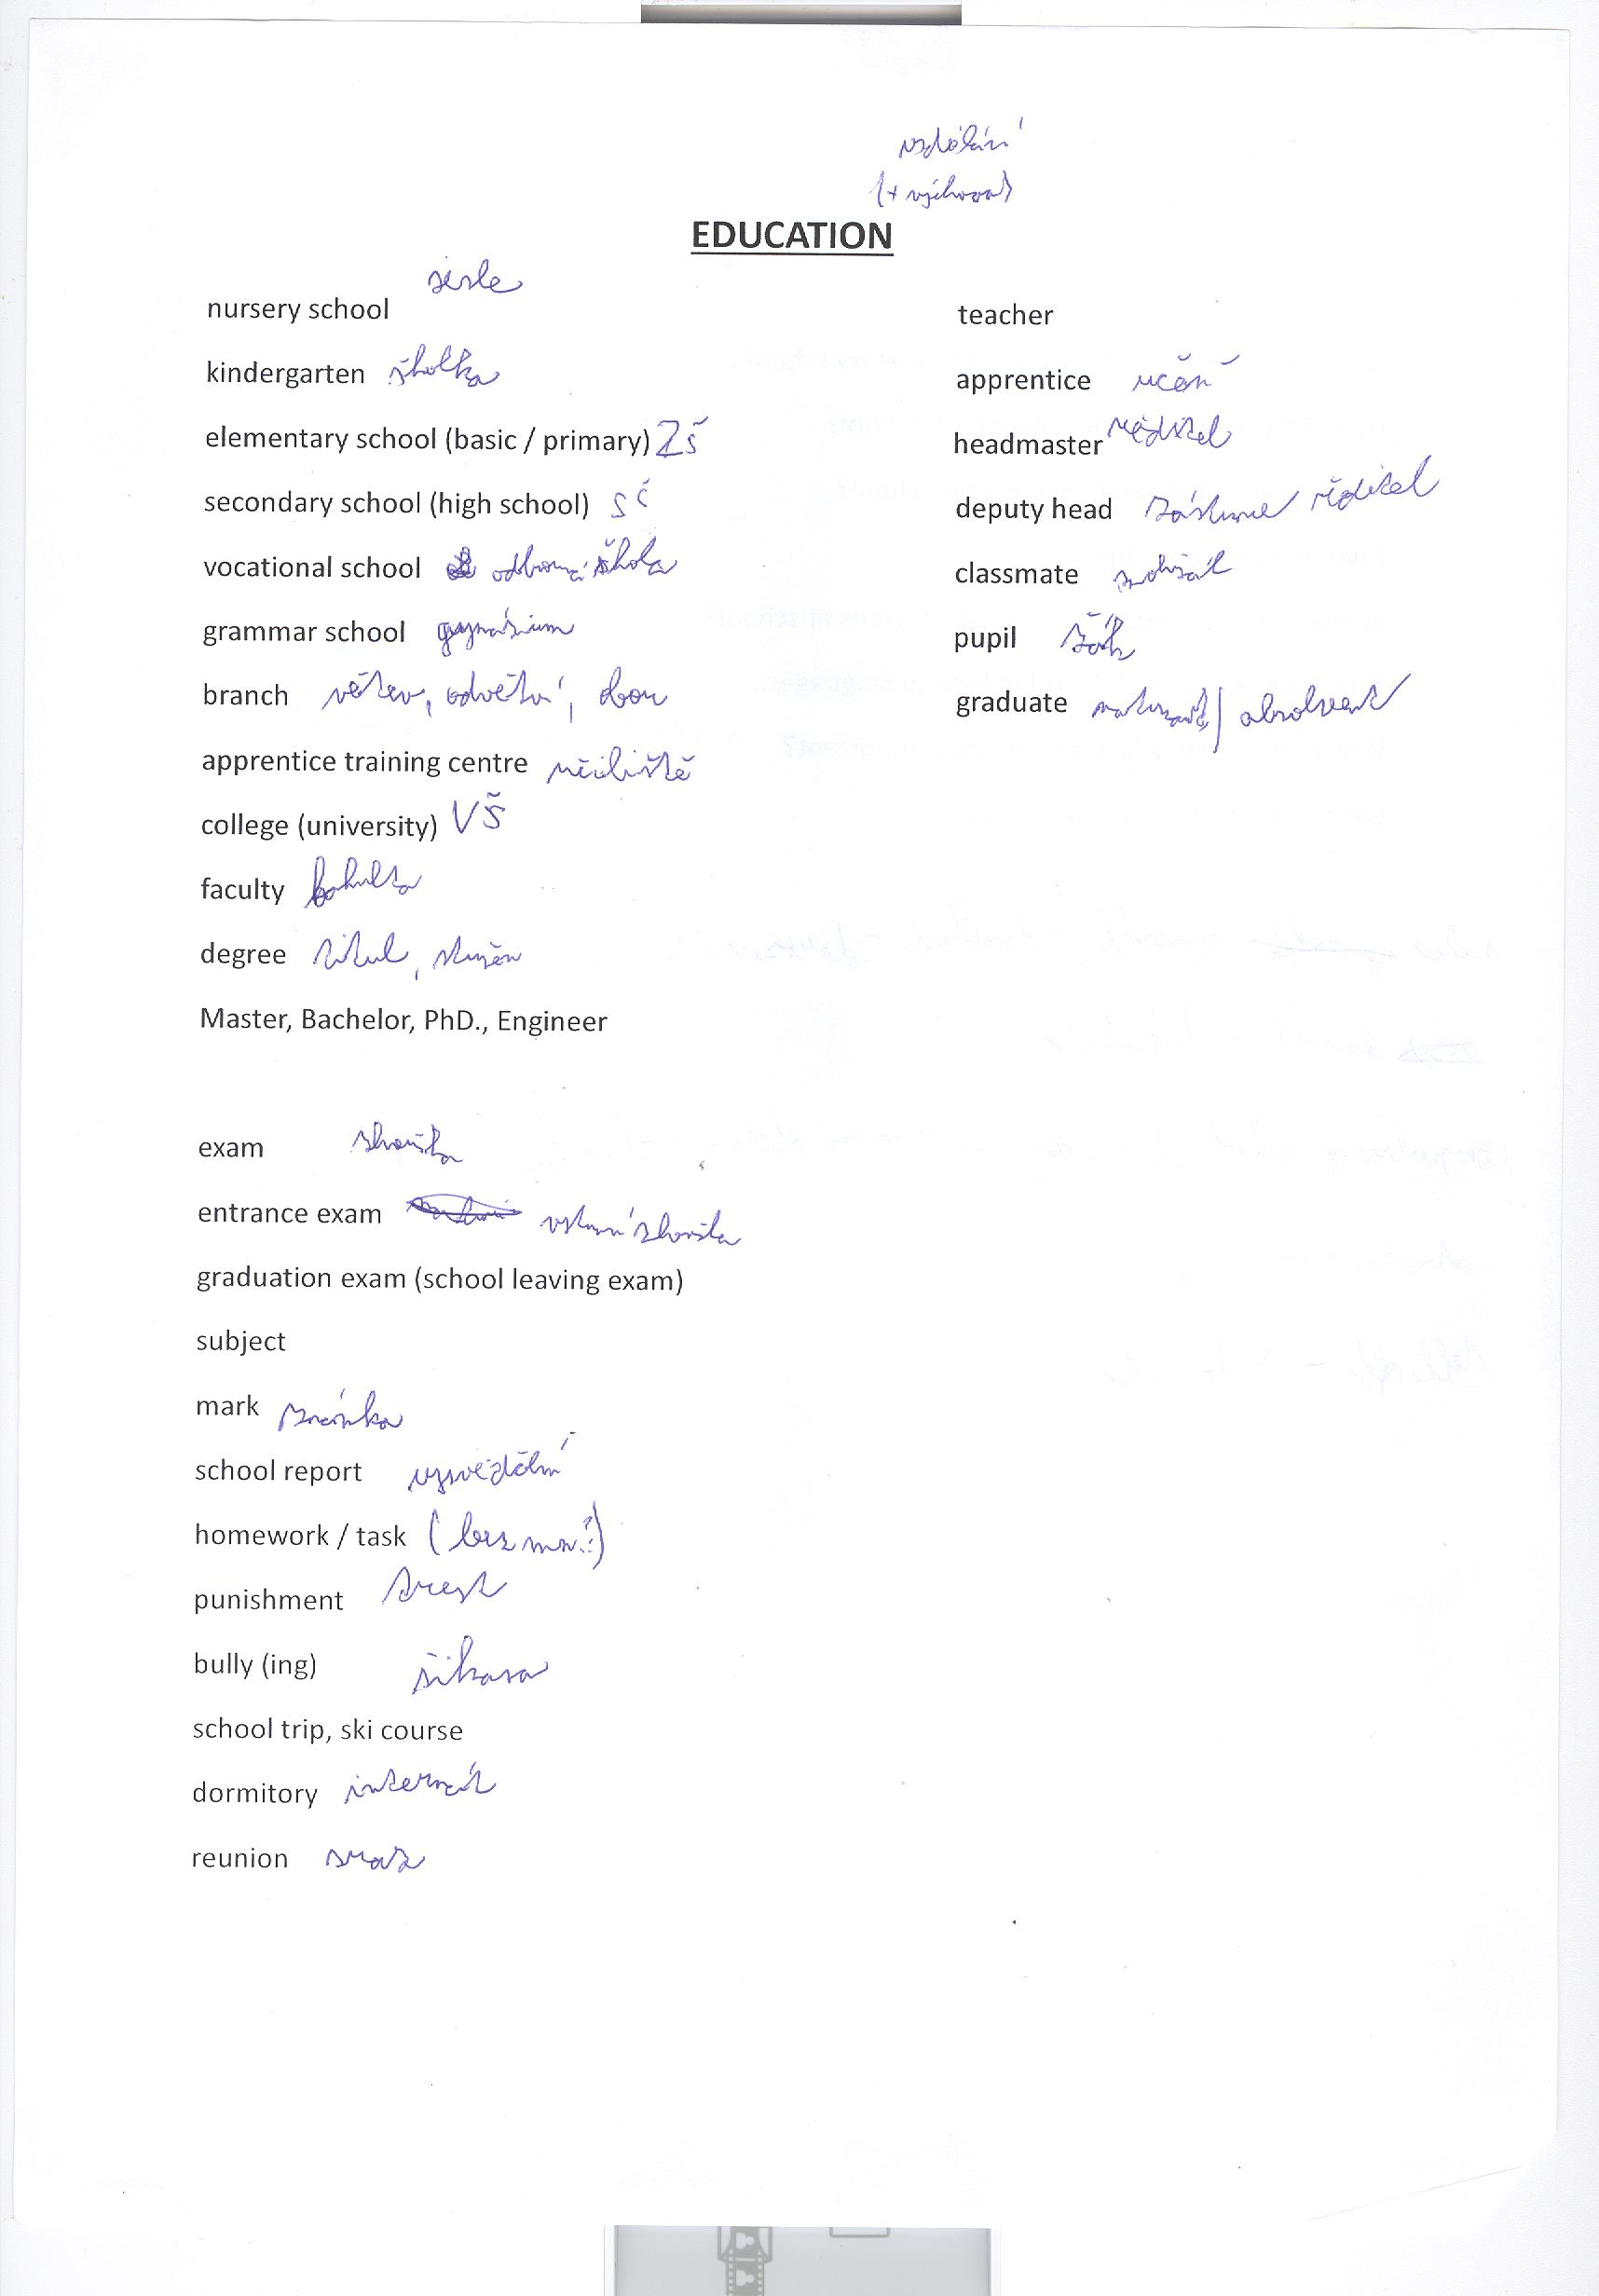 vzdělání
(+ výchova)
EDUCATION
nursery school jesle
kindergarten školka
elementary school (basic / primary) ZŠ
secondary school (high school) SŠ
vocational school odborná škola
grammar school gymnásium
branch větev, odvětví, obor
apprentice training centre učiliště
college (university) VŠ
faculty fakulta
degree titul, stupeň
Master, Bachelor, PhD., Engineer
exam zkouška
entrance exam vstupní zkouška
graduation exam (school leaving exam)
subject
mark známka
school report vysvědčení
homework / task (bez mn.č.)
punishment trest
bully (ing) šikana
school trip, ski course
dormitory internát
reunion sraz
teacher
apprentice učeň
headmaster ředitel
deputy head zástupce ředitel
classmate spolužák
pupil žák
graduate maturant / absolvent